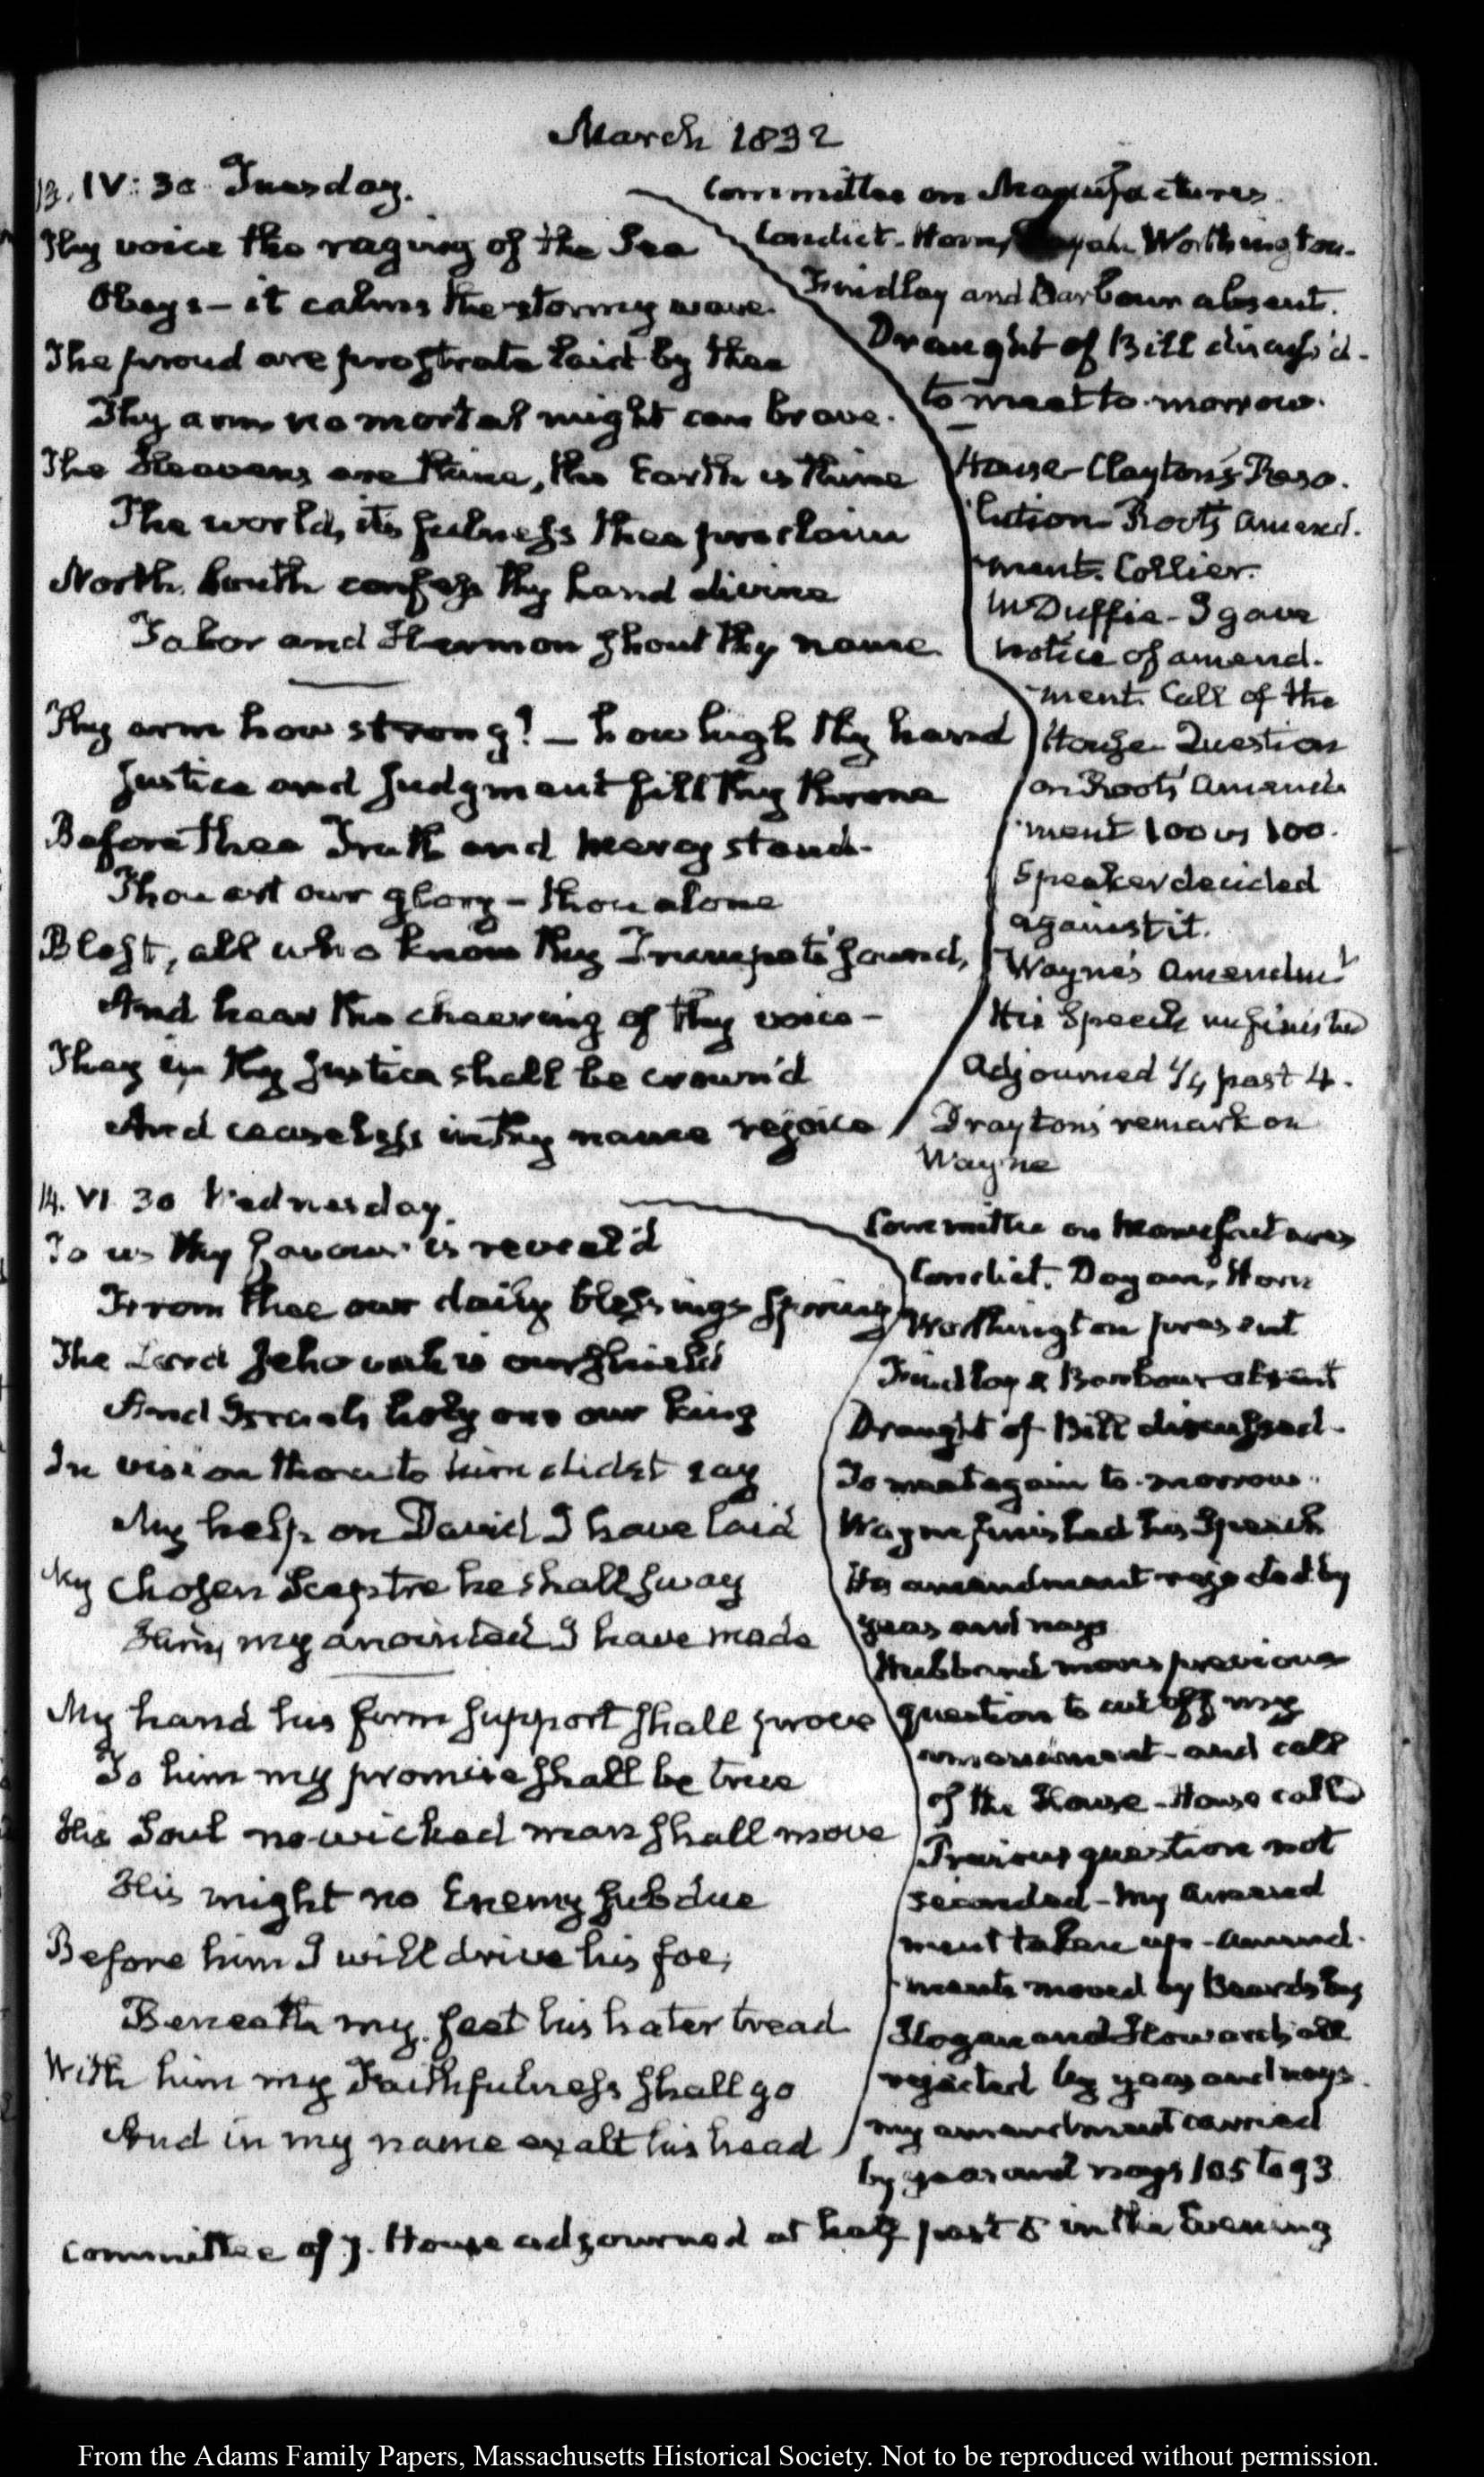 March 1832
13. IV:30 Tuesday.
Thy voice the raging of the Sea
Obeys – it calms the stormy wave.
The proud are prostrate laid by thee
Thy arm no mortal might can brave.
The Heavens are thine, the Earth is thine
The world, its fulness thee proclaim
North, South confess thy hand divine
Tabor and Hermon shout thy name.
Thy arm how strong! – how high thy hand
Justice and Judgment fill thy throne
Before thee Truth and mercy stand.
Thou art our glory – thou alone
Blest, all who know thy Trumpet's sound,
And hear the cheering of thy voice –
They in thy Justice shall be crown'd
And ceaseless in thy name rejoice
Committee on Manufactures
Condict. Horn, Worthington.
Findlay and Barbour absent.
Draught of Bill discuss'd.
to meet to-morrow.
House – Clayton's Reso-
lution Root's amend-
ment. Collier.
McDuffie – I gave
notice of amend-
ment. Call of the
House. Question
on Root's Amend
ment 100 vs 100.
Speaker decided
against it.
Wayne's Amendmt
His Speech unfinished
Adjourned 1/4 past 4.
Drayton's remark on
Wayne
14. VI 30 Wednesday.
To us thy favour is reveal'd
From thee our daily blessings spring
The Lord Jehovah is our shield
And Israel's holy one our king
In vision thou to him didst say
My help on David I have laid
My chosen Sceptre he shall sway
Him, my anointed I have made
My hand his firm support shall prove
To him my promise shall be true
His Soul no wicked man shall move
His might no Enemy subdue
Before him I will drive his foe,
Beneath my feet his hater tread
With him my Faithfulness shall go
And in my name exalt his head
Committee on Manufactures
Condict. Dayan, Horn
Worthington present
Findlay & Barbour absent
Draught of Bill discussed.
To meet again to-morrow.
Wayne finished his Speech
His amendment rejected by
yeas and nays
Hubbard moves previous
question to cut off my
amendment – and call
of the House – House called
Previous question not
seconded – My Amend
ment taken up – Amend-
ments moved by Beardsley
Hogan and Howard, all
rejected by yeas and nays.
my amendment carried
by yeas and nays 105 to 93
Committee of 7. House adjourned at half past 5 in the Evening
From the Adams Family Papers, Massachusetts Historical Society. Not to be reproduced without permission.